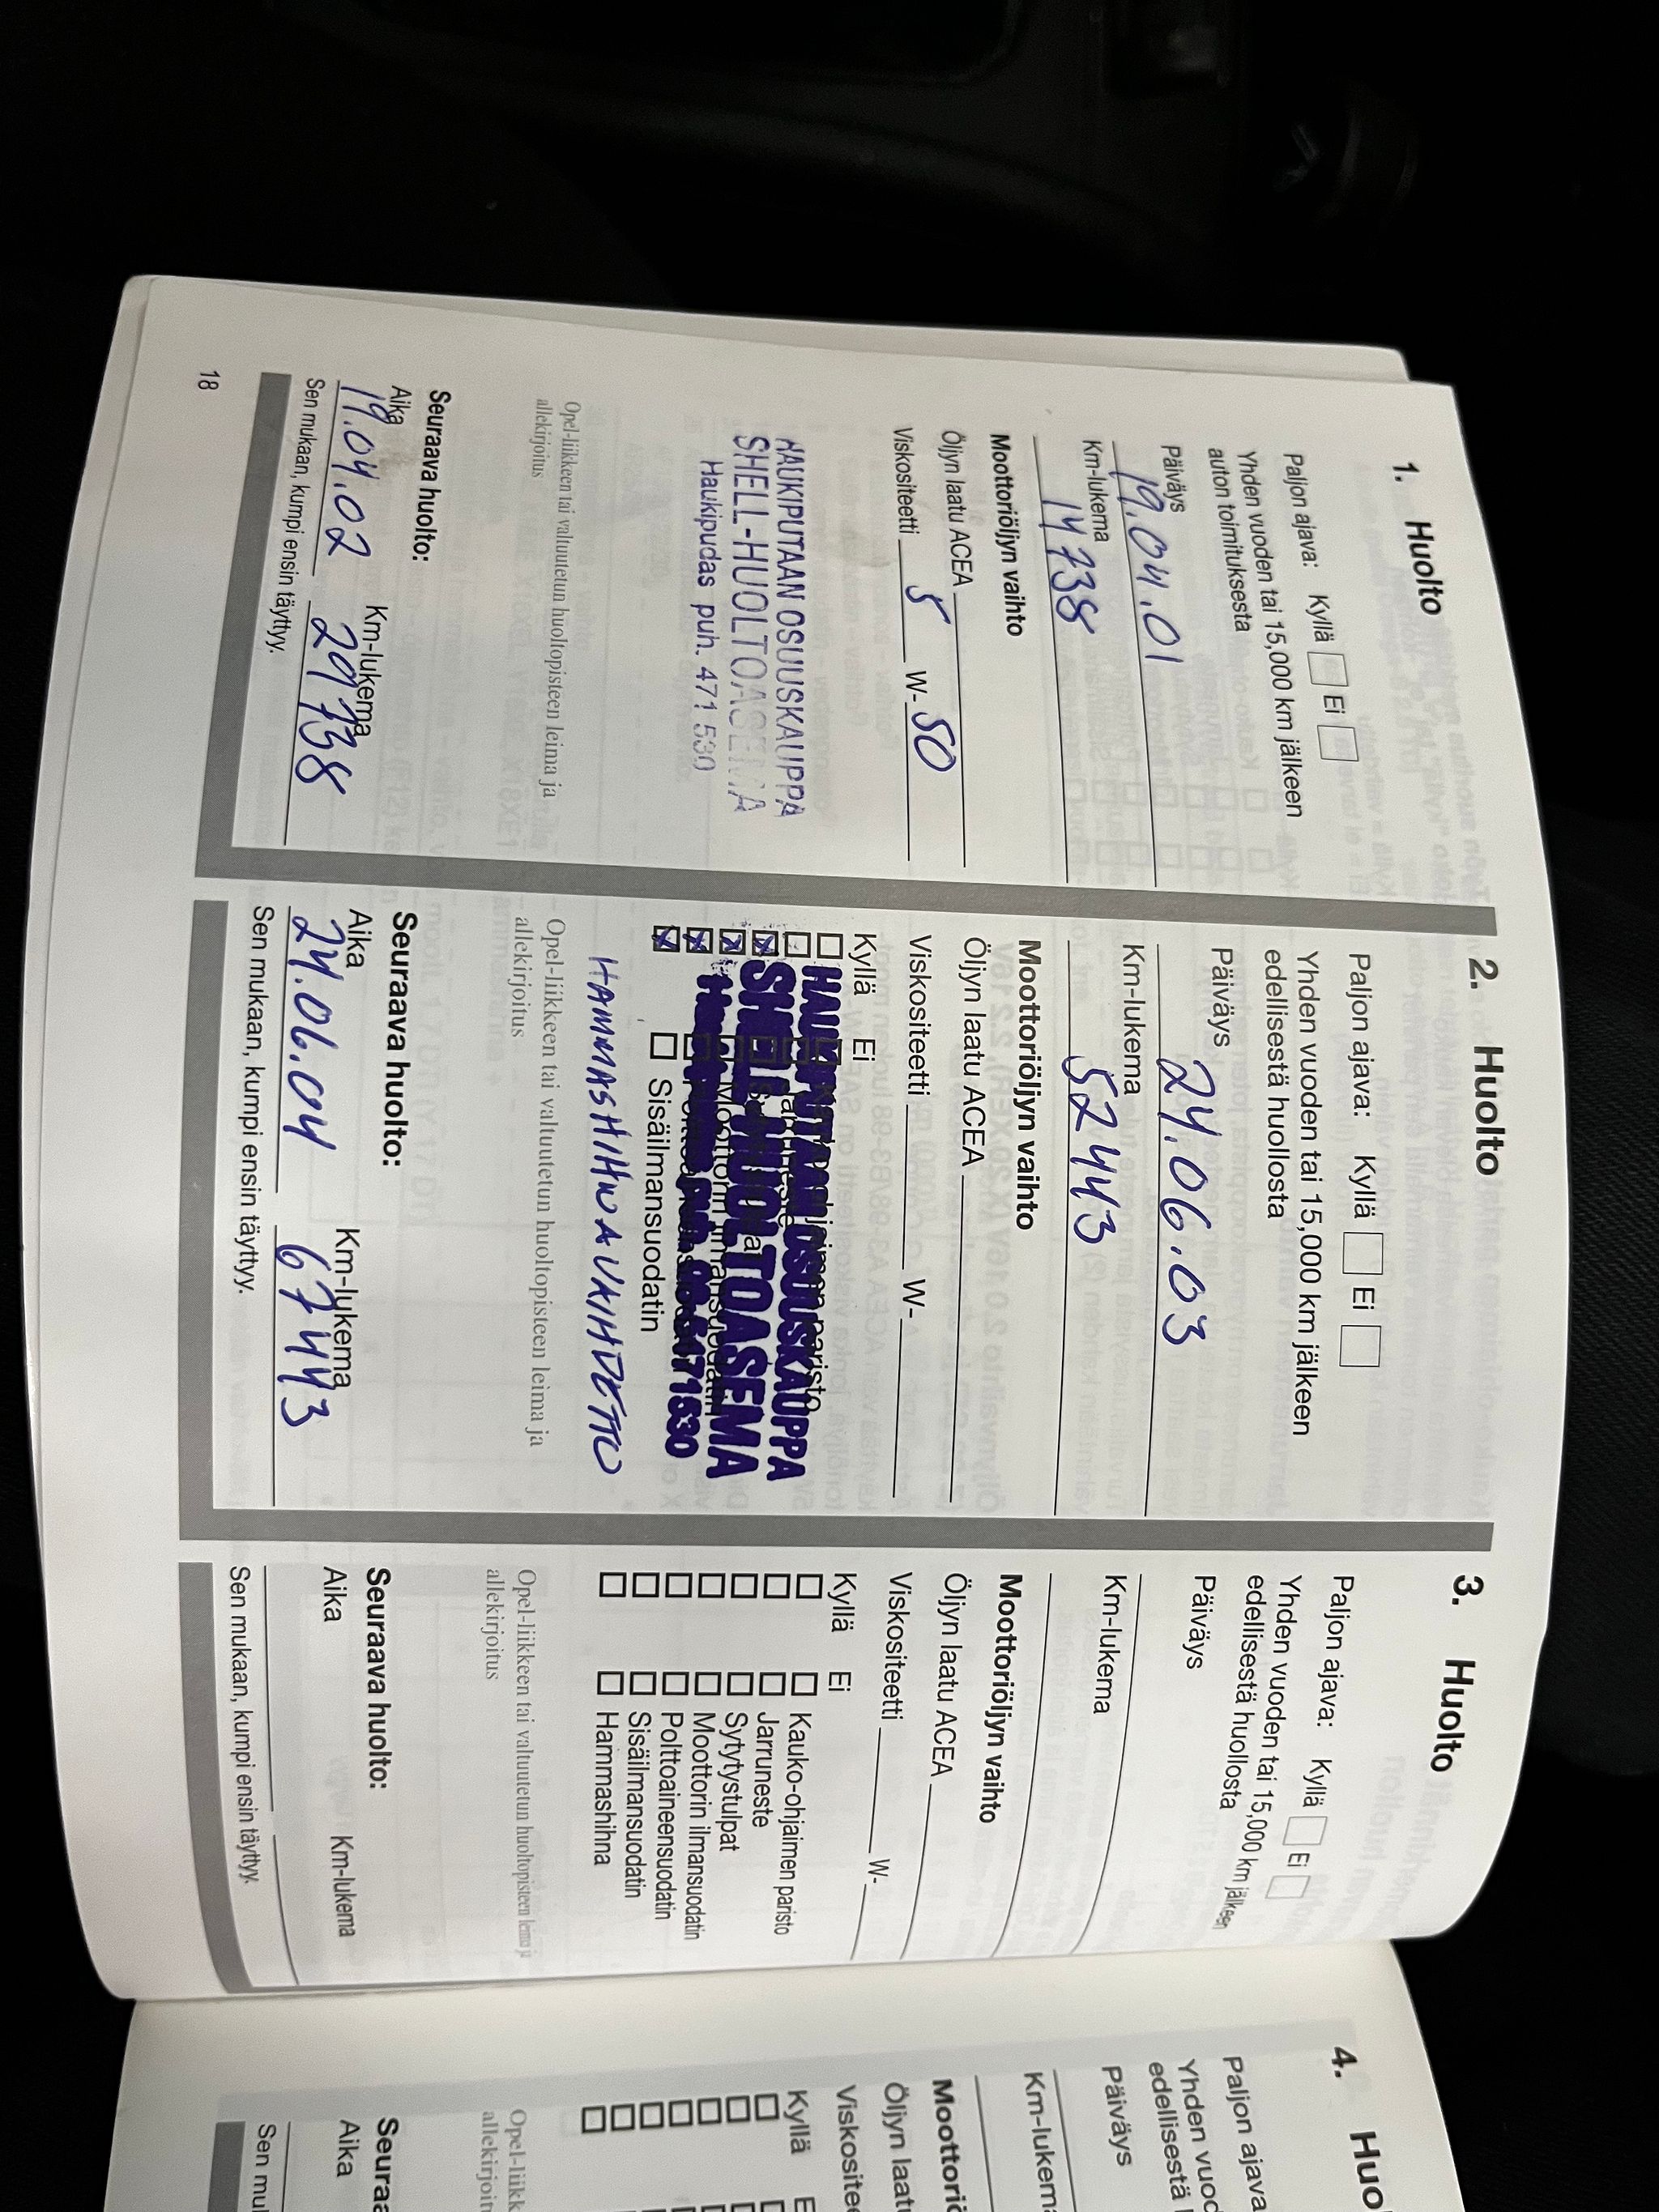 1. Huolto
Paljon ajava: Kyllä Ei
Yhden vuoden tai 15,000 km jälkeen
auton toimituksesta
Päiväys
19.04.01
Km-lukema
14738
Moottoriöljyn vaihto
Öljyn laatu ACEA
Viskositeetti 5 W-50
HAUKIPUTAAN OSUUSKAUPPA
SHELL-HUOLTOASEMA
Haukipudas puh. 471 530
Opel-liikkeen tai valtuutetun huoltopisteen leima ja
allekirjoitus
Seuraava huolto:
Aika Km-lukema
19.04.02 29738
Sen mukaan, kumpi ensin täyttyy.
18
2. Huolto
Paljon ajava: Kyllä Ei
Yhden vuoden tai 15,000 km jälkeen
edellisestä huollosta
Päiväys
24.06.03
Km-lukema
52443
Moottoriöljyn vaihto
Öljyn laatu ACEA
Viskositeetti W-
Kyllä Ei
HAUKIPUTAAN OSUUSKAUPPA
SHELL-HUOLTOASEMA
Sisäilmansuodatin
HAMMASHIHNA VAIHDETTU
Opel-liikkeen tai valtuutetun huoltopisteen leima ja
allekirjoitus
Seuraava huolto:
Aika Km-lukema
24.06.04 67443
Sen mukaan, kumpi ensin täyttyy.
3. Huolto
Paljon ajava: Kyllä Ei
Yhden vuoden tai 15,000 km jälkeen
edellisestä huollosta
Päiväys
Km-lukema
Moottoriöljyn vaihto
Öljyn laatu ACEA
Viskositeetti W-
Kyllä Ei
Kauko-ohjaimen paristo
Jarruneste
Sytytystulpat
Moottorin ilmansuodatin
Polttoaineensuodatin
Sisäilmansuodatin
Hammashihna
Opel-liikkeen tai valtuutetun huoltopisteen leima ja
allekirjoitus
Seuraava huolto:
Aika Km-lukema
Sen mukaan, kumpi ensin täyttyy.
4. Huo
Paljon ajava
Yhden vuod
edellisestä
Päiväys
Km-lukem
Moottoriö
Öljyn laat
Viskositee
Kyllä E
Opel-liikk
allekirjoit
Seuraa
Aika
Sen mu